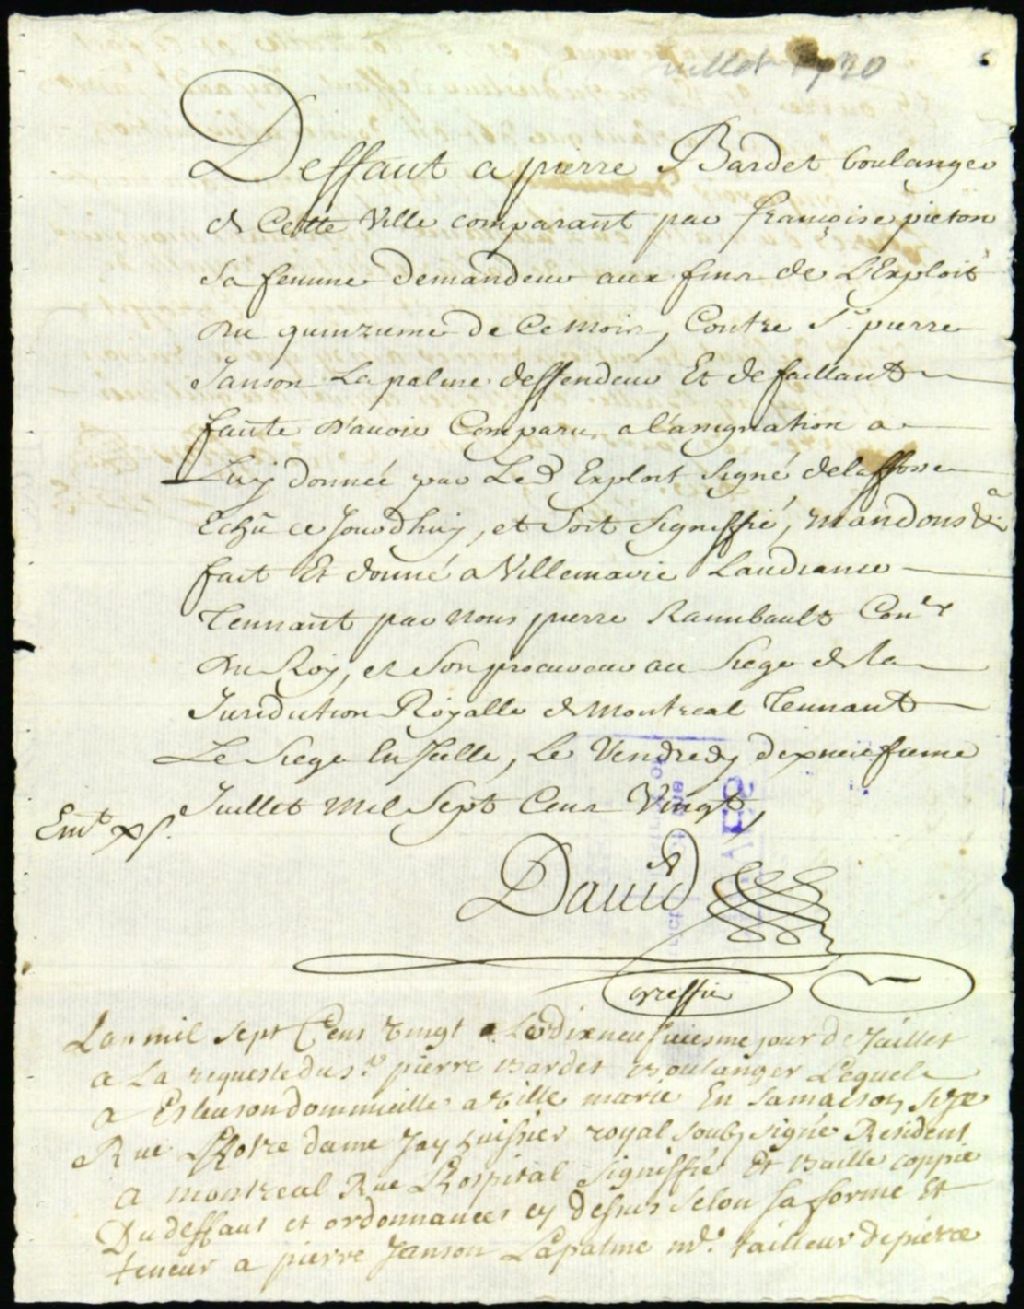 Juillet 1720
Deffaut a pierre Bardet boulanger
de Cette Ville comparant par françoise pieton
Sa femme demandeur aux fins de L'Exploit
du quinzieme de Ce mois, Contre Sr. pierre
Janson Lapalme deffendeur Et defaillant
faute d'avoir Comparu a l'assignation a
Luy donnée par Led Exploit Signé delafosse
Echû ce Jourdhuy, et Soit Signiffié, Mandons &a
fait Et donné a Villemarie Laudiance
Tennant par Nous pierre Raimbault Coner
du Roy, et Son procureur au Siege de la
Juridiction Royalle de Montreal Tennant
Le Siege En Icelle, Le Vendredy dixneufieme
Juillet Mil Sept Cens Vingt,
David
greffier
Lan mil sept Cens vingt Le dixneufviesme jour de Juillet
a La requeste du sr. pierre Bardet Boulanger Lequel
a Esleu son dommicille a ville marie En sa maison size
Rue Notre dame Jay huissier royal soubz signé Resident
a montreal Rue L'hospital signiffié Et baillé coppie
Du deffaut et ordonnances cy dessus selon sa forme Et
teneur a pierre Janson Lapalme md. tailleur de pierre